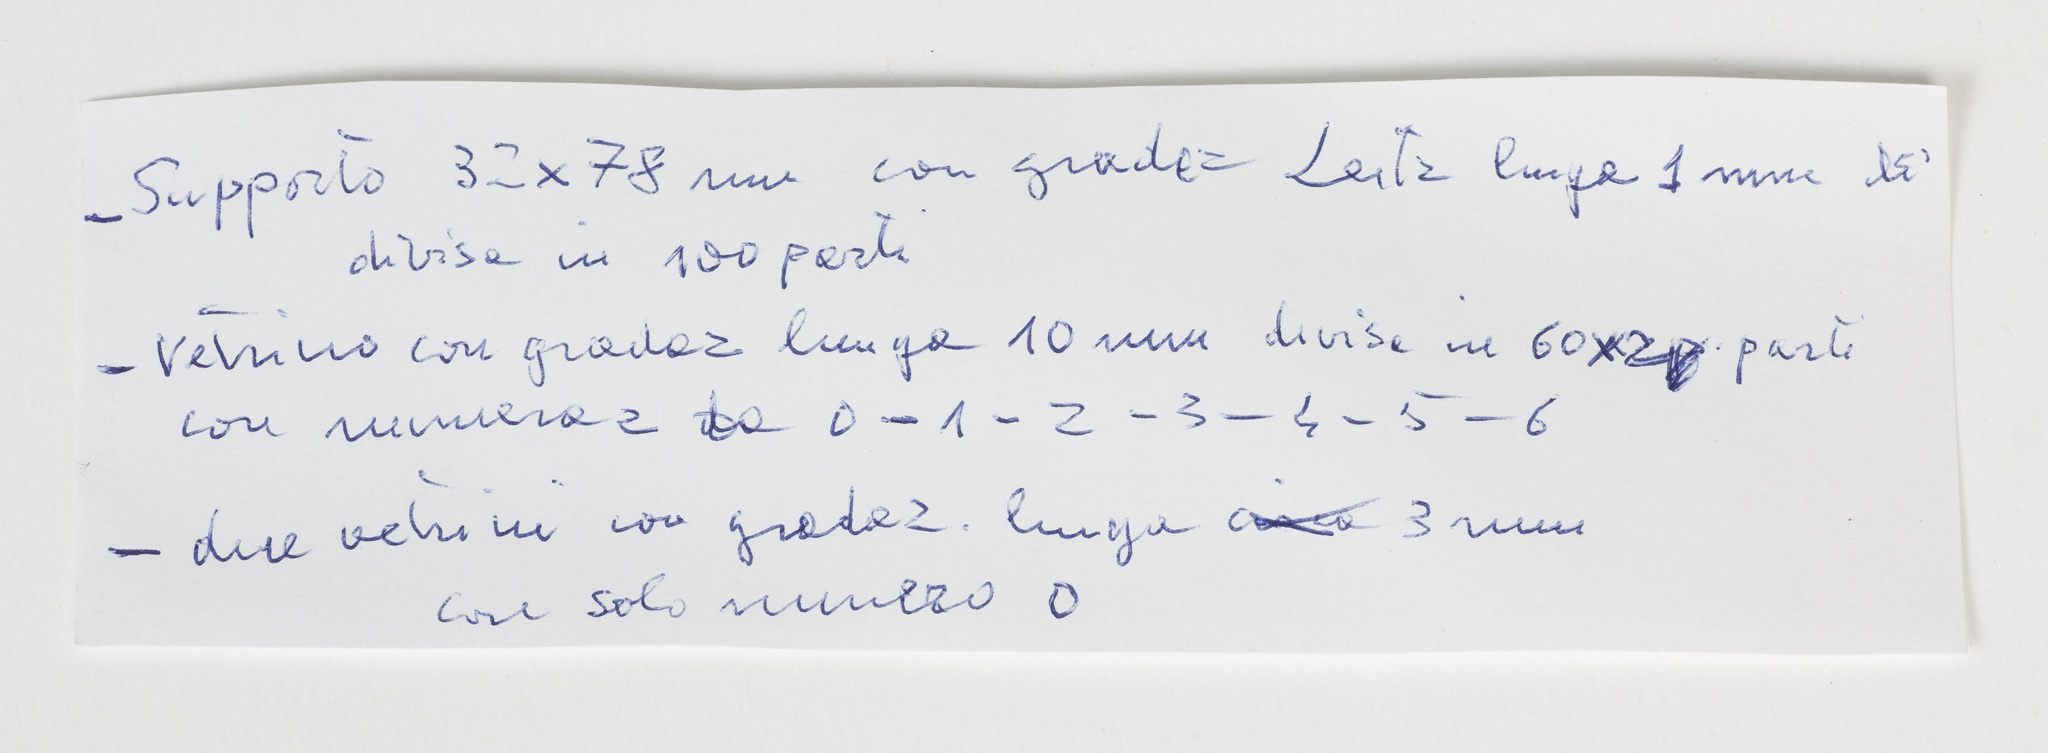 - Supporto 32x78 mm con gradaz Leitz lunga 1 mm
divisa in 100 parti
- Vetrino con gradaz lunga 10 mm divisa in 60x2 parti
con numeraz da 0 - 1 - 2 - 3 - 4 - 5 - 6
- due vetrini con gradaz. lunga circa 3 mm
con solo numero 0